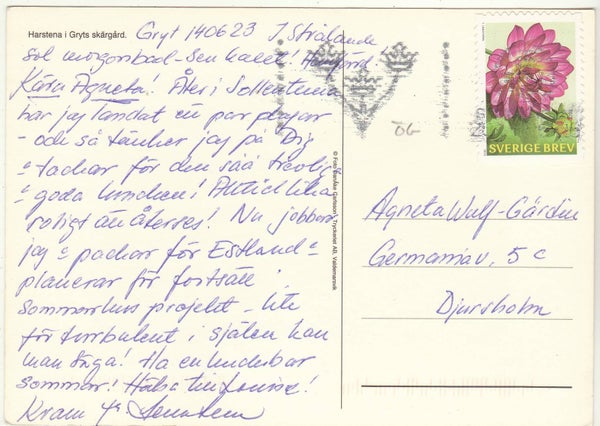 Harstena i Gryts skärgård.
Gryt 140623 I Strålande
sol morgonbad - sen kaffe! Hamnfrid!
Kära Agneta! Åter i Sollentuna
har jag landat en par dagar
- och så tänker jag på Dig
- tackar för den såå trevlig
goda lunchen! Alltid lika
roligt än återses! Nu jobbar
jag - packar för Estland -
planerar för fortsatt
sommarhus projekt - lite
för turbulent i själen kan
man säga! Ha en underbar
sommar! Hälsa
Kram
© Foto Tryckeriet AB, Valdemarsvik
SVERIGE BREV
06
Agneta Wulf-Gärdin
Germaniav. 5 c
Djursholm